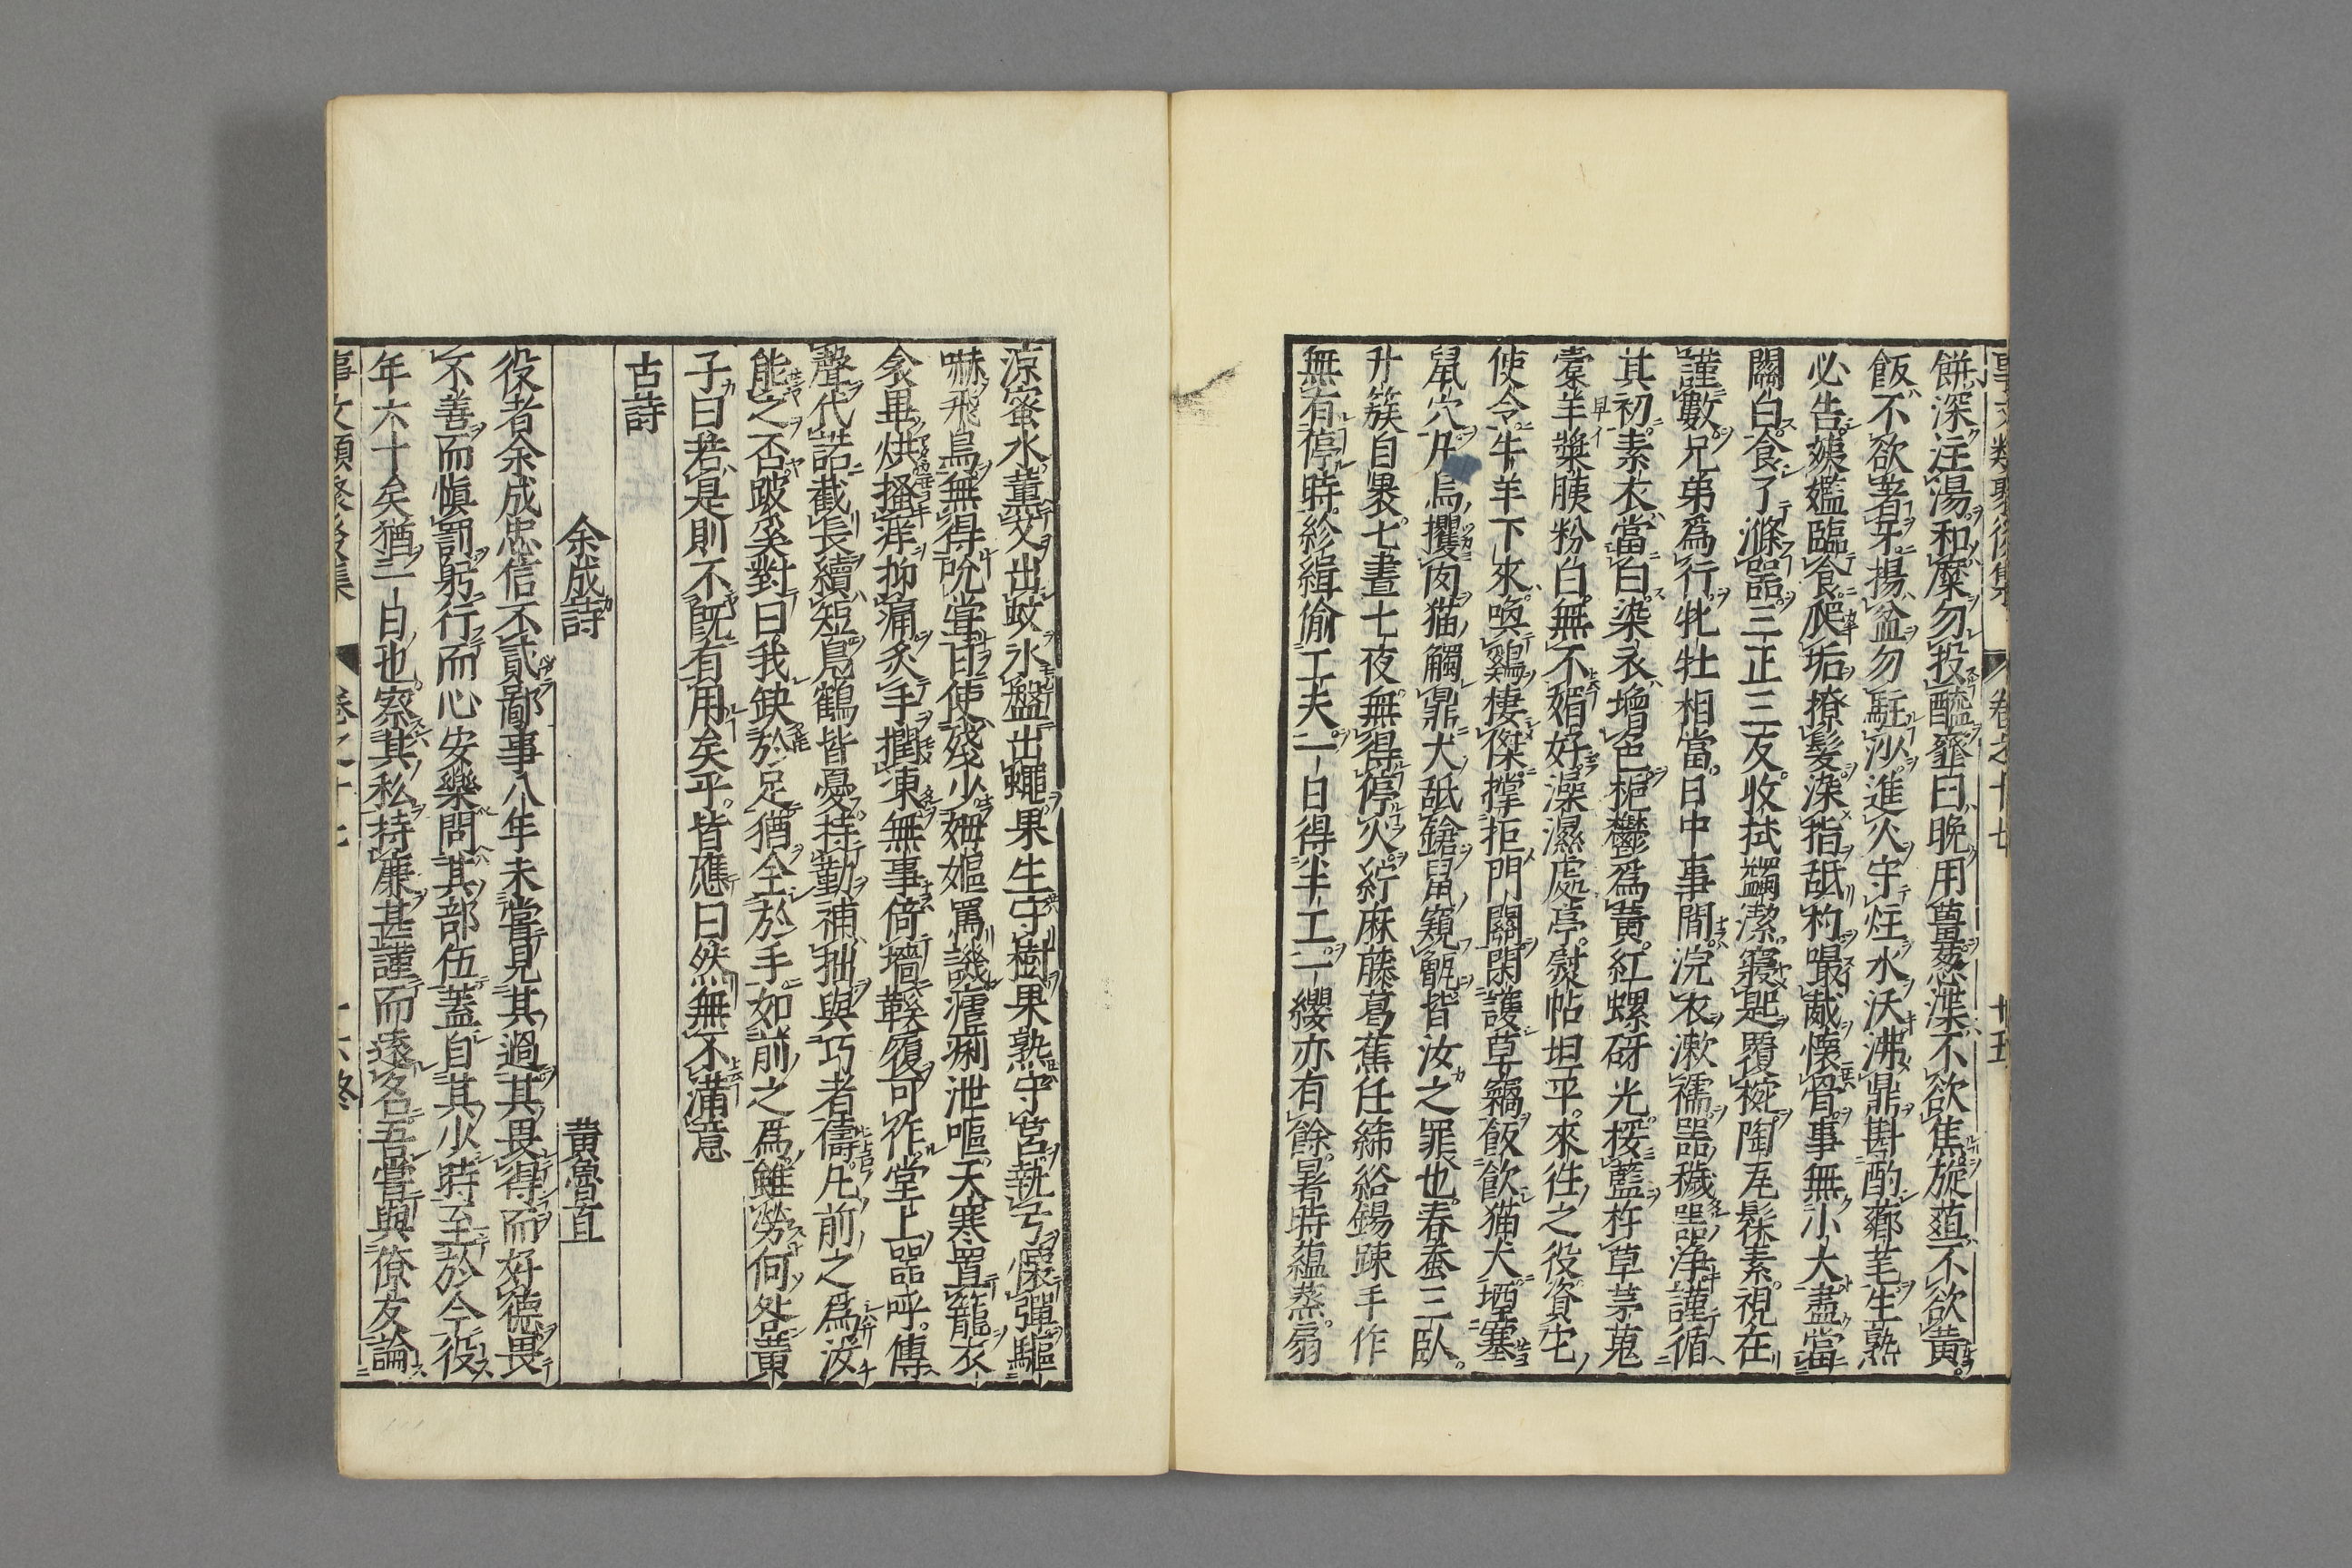 餅深注湯和糜勿投醯虀曰晩用薑葱渫不欲焦旋菹不欲黄
飯不欲著牙揚盆勿駐沙進火守炷水沃沸鼎斟酌薌芼生熟
必告姨嬭臨食爬垢撩髮染指舐杓嘬胾懐骨事無小大盡當
關白食了滌器三正三反收拭蠲潔寢匙覆椀陶瓦髹素視在
謹數兄弟爲行牝牡相當日中事間浣衣漱襦器穢器浄謹循
其初素衣當白染衣增色梔鬱爲黄紅螺砑光挼藍杵草茅蒐
橐羊漿胰粉白無不媚好澡濕處亭熨帖坦平來往之役資它
使令牛羊下來喚鷄棲桀撑拒門關閑護草竊飯飲猫犬堙塞
鼠穴凡烏攫肉猫觸鼎犬舐鎗鼠窺甑皆汝之罪也春蚕三臥
升簇自裹七晝七夜無得停火紵麻藤葛蕉任絺綌錫踈手作
無有停時紾緝偷工夫一日得半工一纓亦有餘暑時蘊蒸扇
涼蜜水薫艾出蚊氷盤出蠅果生守樹果熟守筥執弓懷彈驅
嚇飛烏無得吮嘗日使殘少姆嫗罵譏瘧痢泄嘔天寒置籠衣
衾畢烘搔痒抑痛炙手捫凍無事倚墻鞵履可作堂上器呼傳
聲代諾截長續短鳬鶴皆憂持勤補拙與巧者儔凡前之爲汝
能之否跛奚對曰我缺於足猶全於手如前之爲雖勞何咎黄
子曰若是則不既有用矣乎皆應曰然無不満意
古詩
余成詩 黄魯直
役者余成忠信不貳鄙事八年未嘗見其過其畏得而好徳畏
不善而愼罰躬行而心安樂問其部伍蓋自其少時至於今役
年六十矣猶一日也察其私持廉甚謹而遠名吾嘗與僚友論